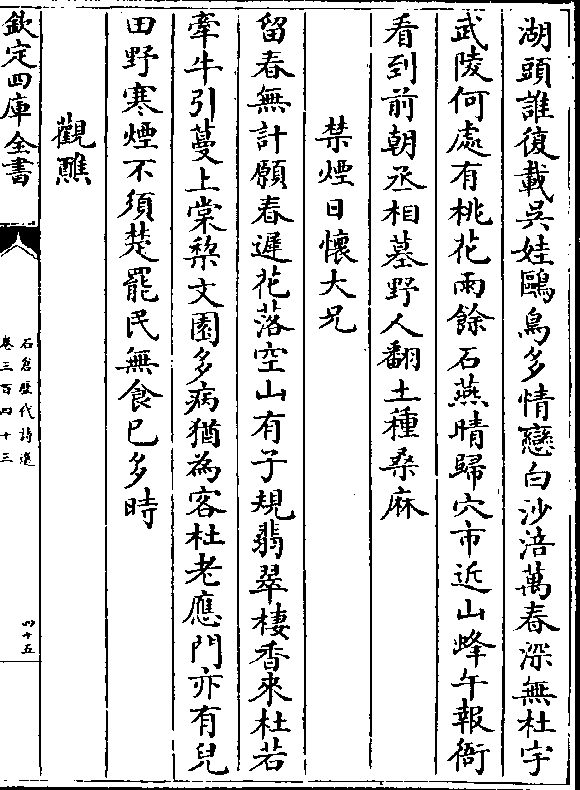 湖頭誰復載吳娃鷗鳥多情戀白沙涪萬春深無杜宇
武陵何處有桃花雨餘石燕晴歸穴市近山蜂午報衙
看到前朝丞相墓野人翻土種桑麻
禁煙日懷大兄
留春無計願春遲花落空山有子規翡翠棲香來杜若
牽牛引蔓上棠棃文園多病猶為客杜老應門亦有兒
田野寒煙不須楚罷民無食已多時
觀醮
欽定四庫全書
石倉歷代詩選
卷三百四十三
四十五